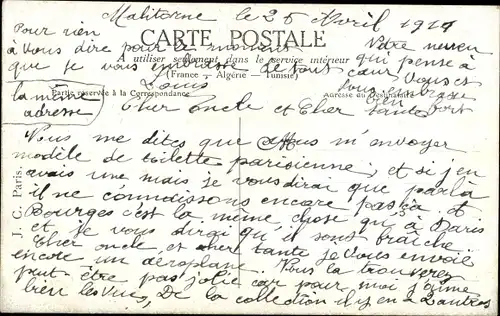 Malitorne le 25 Avril 191
Pour rien
à vous dire pour le moment
que je vous embrasse de tout cœur
Louis
Votre neveu
qui pense à
Vous et
vous embrasse
bien fort
CARTE POSTALE
A utiliser seulement dans le service intérieur
(France – Algérie – Tunisie)
Partie réservée à la Correspondance
Adresse du Destinataire
la même
adresse
Cher Oncle et Cher Tante
Vous me dites que vous m'envoyer
modèle de toilette parisienne; et si j'en
avais une mais je vous dirai que par la
il ne connaissons encore pas ça et
Bourges c'est la même chose qu'à Paris
et je vous dirai qu'il sont fraîche
Cher oncle et cher tante je vous envoie
encore un aéroplane. Vous la trouverez
peut être pas jolie car pour moi j'aime
bien les vues, De la collection il y en a 2 autres
J. C. Paris.